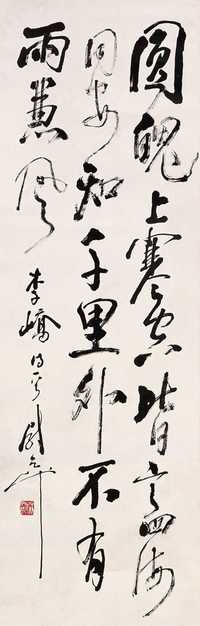 圓魄上寒空皆言四海
同安知千里外不有
雨兼風
李嶠詩